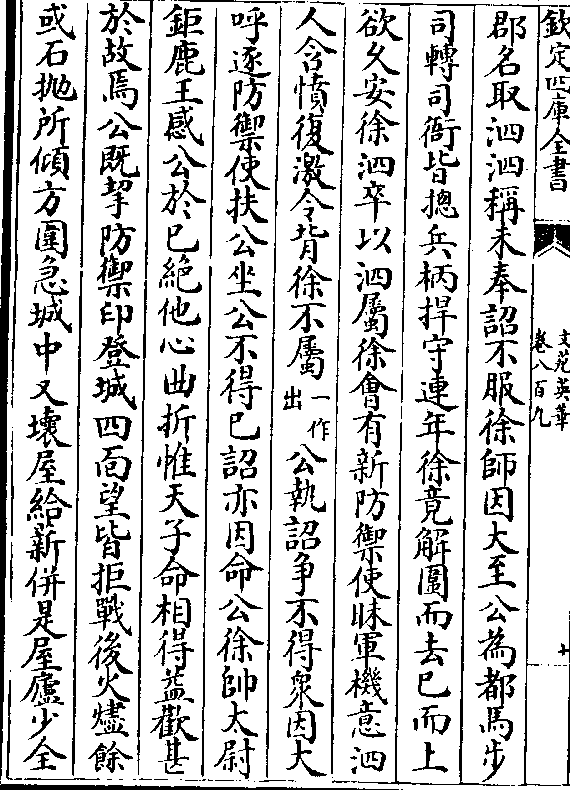 欽定四庫全書
文苑英華
卷八百九
十
郡名取泗泗稱未奉詔不服徐師因大至公為都馬步
司轉司衙皆摠兵柄捍守連年徐竟解圍而去已而上
欲久安徐泗卒以泗屬徐會有新防禦使昧軍機意泗
人含憤復激令背徐不屬一作出公執詔爭不得衆因大
呼逐防禦使扶公坐公不得已詔亦因命公徐帥太尉
鉅鹿王感公於已絶他心曲折惟天子命相得葢歡甚
於故焉公既挈防禦印登城四面望皆拒戰後火燼餘
或石抛所傾方圍急城中又壞屋給薪併是屋廬少全